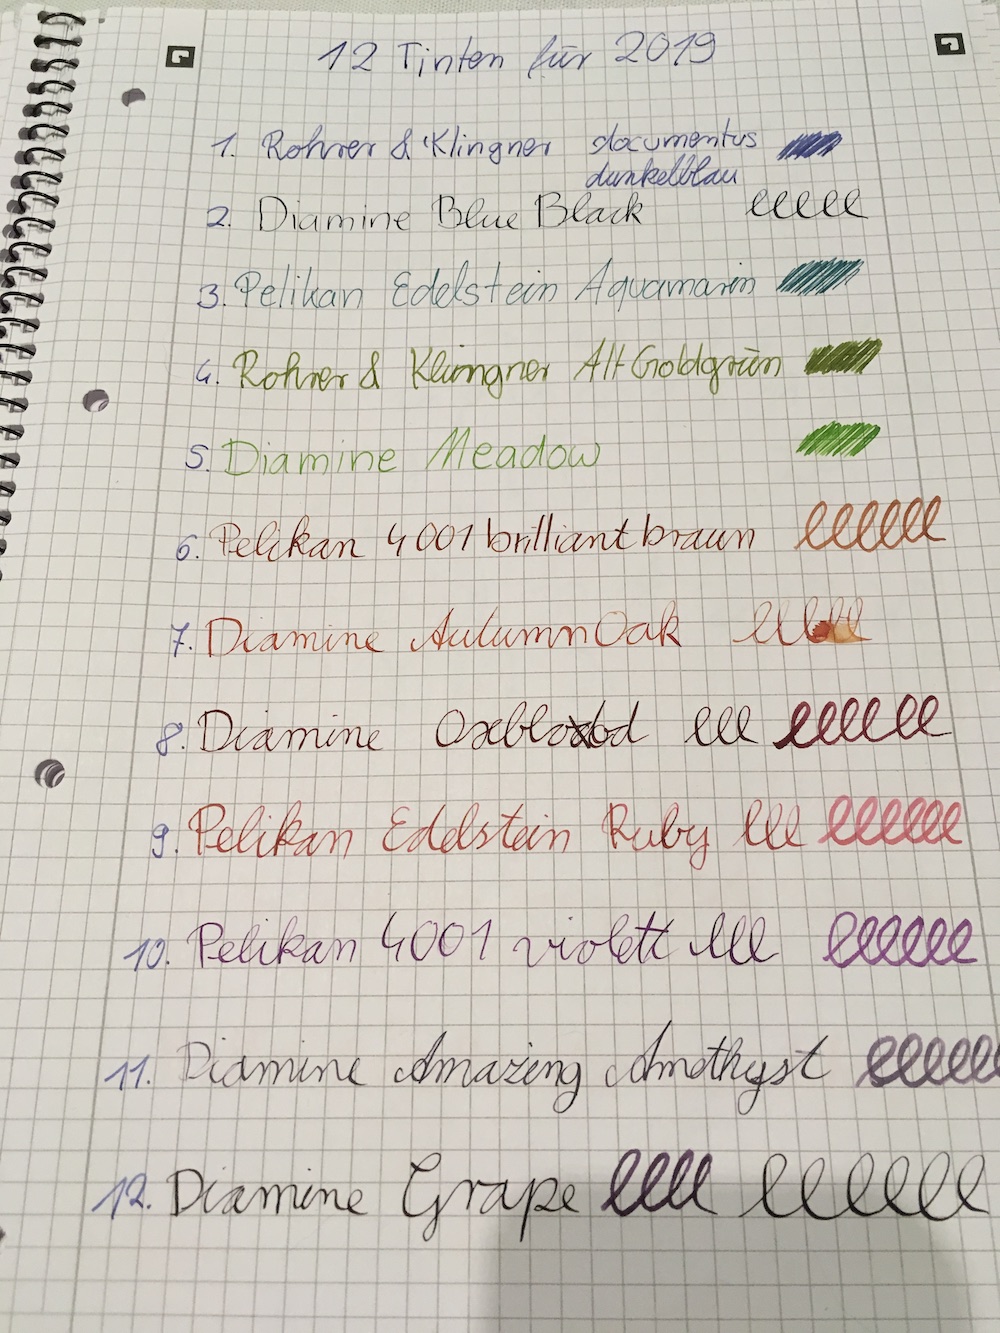 12 Tinten für 2019
1. Rohrer & Klingner documentus
dunkelblau
2. Diamine Blue Black
3. Pelikan Edelstein Aquamarin
4. Rohrer & Klingner Alt Goldgrün
5. Diamine Meadow
6. Pelikan 4001 brilliantbraun
7. Diamine Autumn Oak
8. Diamine Oxeblood
9. Pelikan Edelstein Ruby
10. Pelikan 4001 violett
11. Diamine Amazing Amethyst
12. Diamine Grape